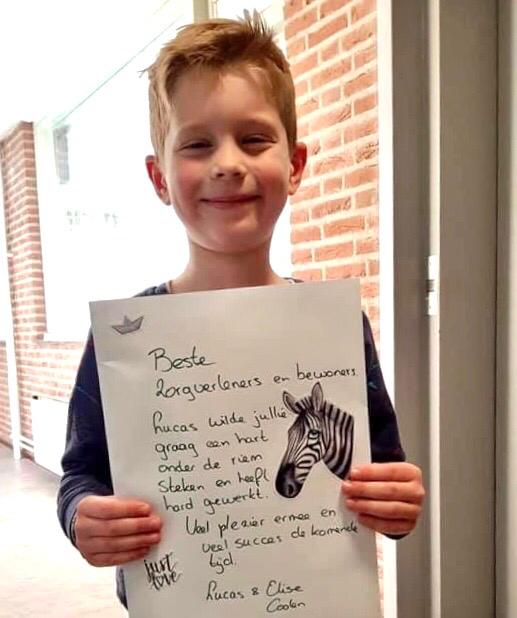 Beste
zorgverleners en bewoners.
Lucas wilde jullie
graag een hart
onder de riem
steken en heeft
hard gewerkt.
Veel plezier ermee en
veel succes de komende
tijd.
just
love
Lucas & Elise
Coolen